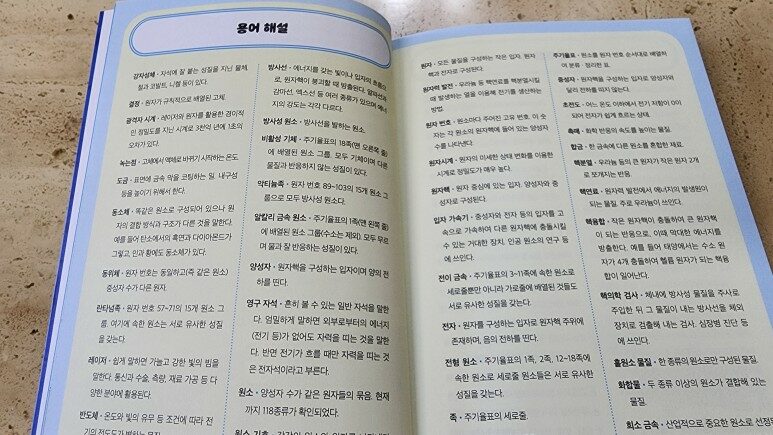 용어 해설
강자성체 · 자석에 잘 붙는 성질을 지닌 물체.
철과 코발트, 니켈 등이 있다.
결정 · 원자가 규칙적으로 배열된 고체.
광격자 시계 · 레이저와 원자를 활용한 경이적
인 정밀도를 지닌 시계로 3천억 년에 1초의
오차가 있다.
녹는점 · 고체에서 액체로 바뀌기 시작하는 온도.
도금 · 표면에 금속 막을 코팅하는 일. 내구성
등을 높이기 위해서 한다.
동소체 · 똑같은 원소로 구성되어 있으나 원
자의 결합 방식과 구조가 다른 것을 말한다.
예를 들어 탄소에서의 흑연과 다이아몬드가
그렇고, 인과 황에도 동소체가 있다.
동위체 · 원자 번호는 동일하고(즉 같은 원소)
중성자 수가 다른 원자.
란타넘족 · 원자 번호 57~71의 15개 원소 그
룹. 여기에 속한 원소는 서로 유사한 성질
을 갖는다.
레이저 · 쉽게 말하면 가늘고 강한 빛의 빔을
말한다. 통신과 수술, 측량, 재료 가공 등 다
양한 분야에 활용된다.
반도체 · 온도와 빛의 유무 등 조건에 따라 전
기의 전도도가 바뀌는 물질.
방사선 · 에너지를 갖는 빛이나 입자의 흐름으
로, 원자핵이 붕괴할 때 방출된다. 알파선과
감마선, 엑스선 등 여러 종류가 있으며 에너
지의 강도는 각각 다르다.
방사성 원소 · 방사선을 발하는 원소.
비활성 기체 · 주기율표의 18족(맨 오른쪽 줄)
에 배열된 원소 그룹. 모두 기체이며 다른
물질과 반응하지 않는 성질이 있다.
악티늄족 · 원자 번호 89~103의 15개 원소 그
룹으로 모두 방사성 원소다.
알칼리 금속 원소 · 주기율표의 1족(맨 왼쪽 줄)
에 배열된 원소 그룹(수소는 제외). 모두 무르
며 물과 잘 반응하는 성질이 있다.
양성자 · 원자핵을 구성하는 입자이며 양의 전
하를 띤다.
영구 자석 · 흔히 볼 수 있는 일반 자석을 말한
다. 엄밀하게 말하면 외부로부터의 에너지
(전기 등)가 없어도 자력을 띠는 것을 말한
다. 반면 전기가 흐를 때만 자력을 띠는 것
은 전자석이라고 부른다.
원소 · 양성자 수가 같은 원자들의 묶음. 현재
까지 118종류가 확인되었다.
원소 기호 ·
원자 · 모든 물질을 구성하는 작은 입자. 원자
핵과 전자로 구성된다.
원자력 발전 · 우라늄 등 핵연료를 핵분열시킬
때 발생하는 열을 이용해 전기를 생산하는
방법.
원자 번호 · 원소마다 주어진 고유 번호. 이 숫
자는 각 원소의 원자핵에 들어 있는 양성자
수를 나타낸다.
원자시계 · 원자의 미세한 상태 변화를 이용한
시계로 정밀도가 매우 높다.
원자핵 · 원자 중심에 있는 입자. 양성자와 중
성자로 구성된다.
입자 가속기 · 중성자와 전자 등의 입자를 고
속으로 가속하며 다른 원자핵에 충돌시킬
수 있는 거대한 장치. 인공 원소의 연구 등
에 쓰인다.
전이 금속 · 주기율표의 3~11족에 속한 원소로
세로줄뿐만 아니라 가로줄에 배열된 것들도
서로 유사한 성질을 갖는다.
전자 · 원자를 구성하는 입자로 원자핵 주위에
존재하며, 음의 전하를 띤다.
전형 원소 · 주기율표의 1족, 2족, 12~18족에
속한 원소로 세로줄 원소들은 서로 유사한
성질을 갖는다.
족 · 주기율표의 세로줄.
주기율표 · 원소를 원자 번호 순서대로 배열하
여 분류 · 정리한 표.
중성자 · 원자핵을 구성하는 입자로 양성자와
달리 전하를 띠지 않는다.
초전도 · 어느 온도 이하에서 전기 저항이 0이
되어 전자가 쉽게 흐르는 상태.
촉매 · 화학 반응의 속도를 높이는 물질.
합금 · 한 금속에 다른 원소를 혼합한 재료.
핵분열 · 우라늄 등의 큰 원자가 작은 원자 2개
로 쪼개지는 반응.
핵연료 · 원자력 발전에서 에너지의 발생원이
되는 물질. 주로 우라늄이 쓰인다.
핵융합 · 작은 원자핵이 충돌하며 큰 원자핵이
되는 반응으로, 이때 막대한 에너지를
방출한다. 예를 들어 태양에서는 수소 원
자가 4개 충돌하여 헬륨 원자가 되는 핵융
합이 일어난다.
핵의학 검사 · 체내에 방사성 물질을 주사로
주입한 뒤 그 물질이 내는 방사선을 체외
장치로 검출해 내는 검사. 심장병 진단 등
에 쓰인다.
홑원소 물질 · 한 종류의 원소로만 구성된 물질.
화합물 · 두 종류 이상의 원소가 결합해 있는
물질.
희소 금속 · 산업적으로 중요한 원소로 선정된